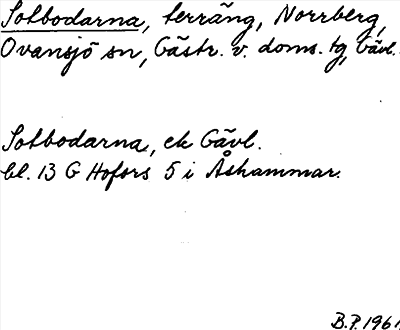 Sotbodarna, terräng, Norrberg,
Ovansjö sn, Gästr. v. doms. tg, Gävl.
Sotbodarna, ek Gävl.
bl. 13 G Hofors 5 i Åshammar.
B.P. 1961